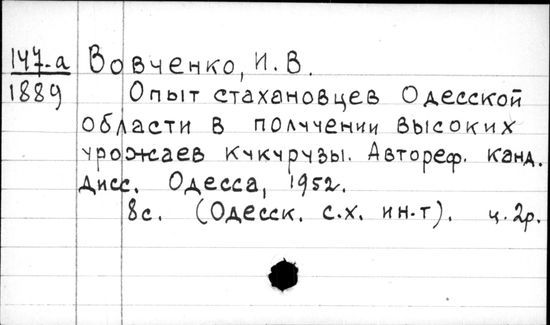 147-а Вовченко, И. В.
1889 Опыт стахановцев Одесской
области в получении высоких
урожаев кукурузы. Автореф. канд.
дисс. Одесса, 1952.
8с. (Одесск. с.х. ин-т). ц. 2р.